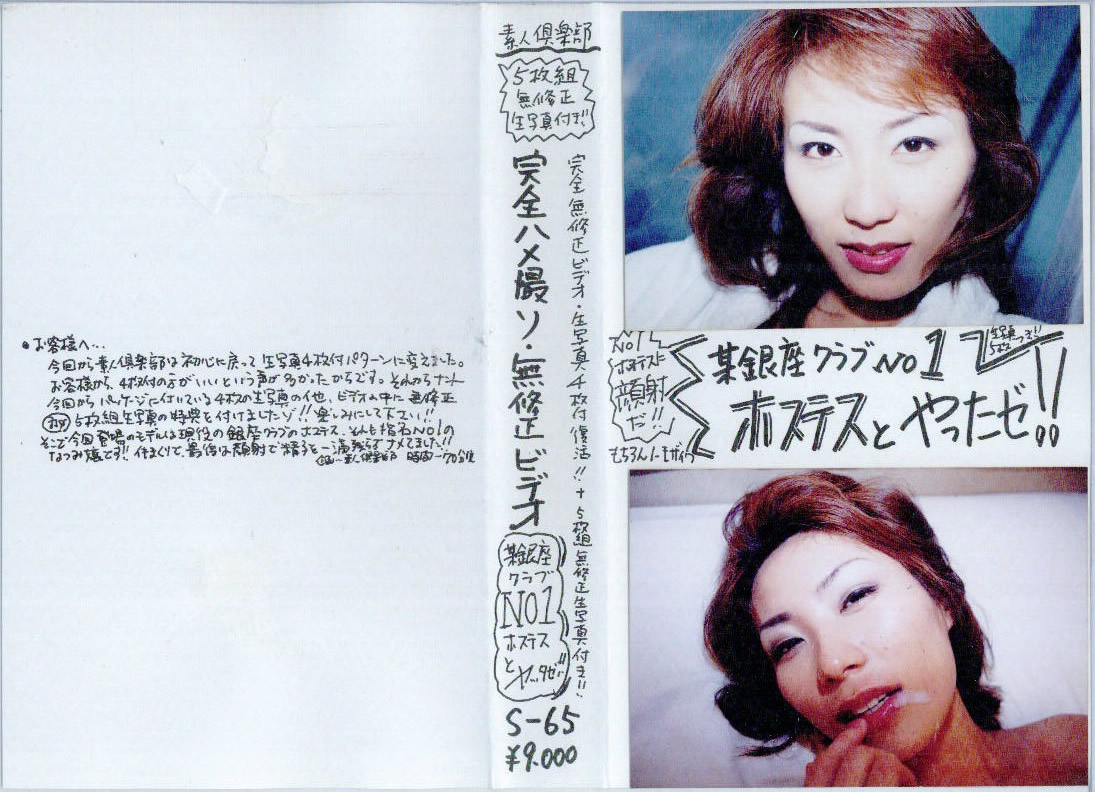 ●お客様へ…
今回から素人倶楽部は初心に戻って生写真4枚付パターンに変えました。
お客様から、4枚付の方がいいという声が多かったからです。それからナント
今回からパッケージに付いている4枚の生写真の他、ビデオの中に無修正
5枚組生写真の特典を付けましたゾ!!楽しみにして下さい!!
そこで今回登場のモデルは現役の銀座クラブのホステス、それも指名NO1の
なつみ嬢です!!
最後は顔射で精子を一滴残らずナメてました!!
素人倶楽部
5枚組
無修正
生写真付き!!
完全ハメ撮り・無修正ビデオ
完全無修正ビデオ・生写真4枚付復活!!+5枚組無修正生写真付き!!
某銀座
クラブ
NO1
ホステス
とヤッタゼ!!
S-65
¥9.000
NO1
ホステスに
顔射
だ!!
もちろんノーモザイク
某銀座クラブNO1
ホステスとやったゼ!!
生写真
5枚つき!!